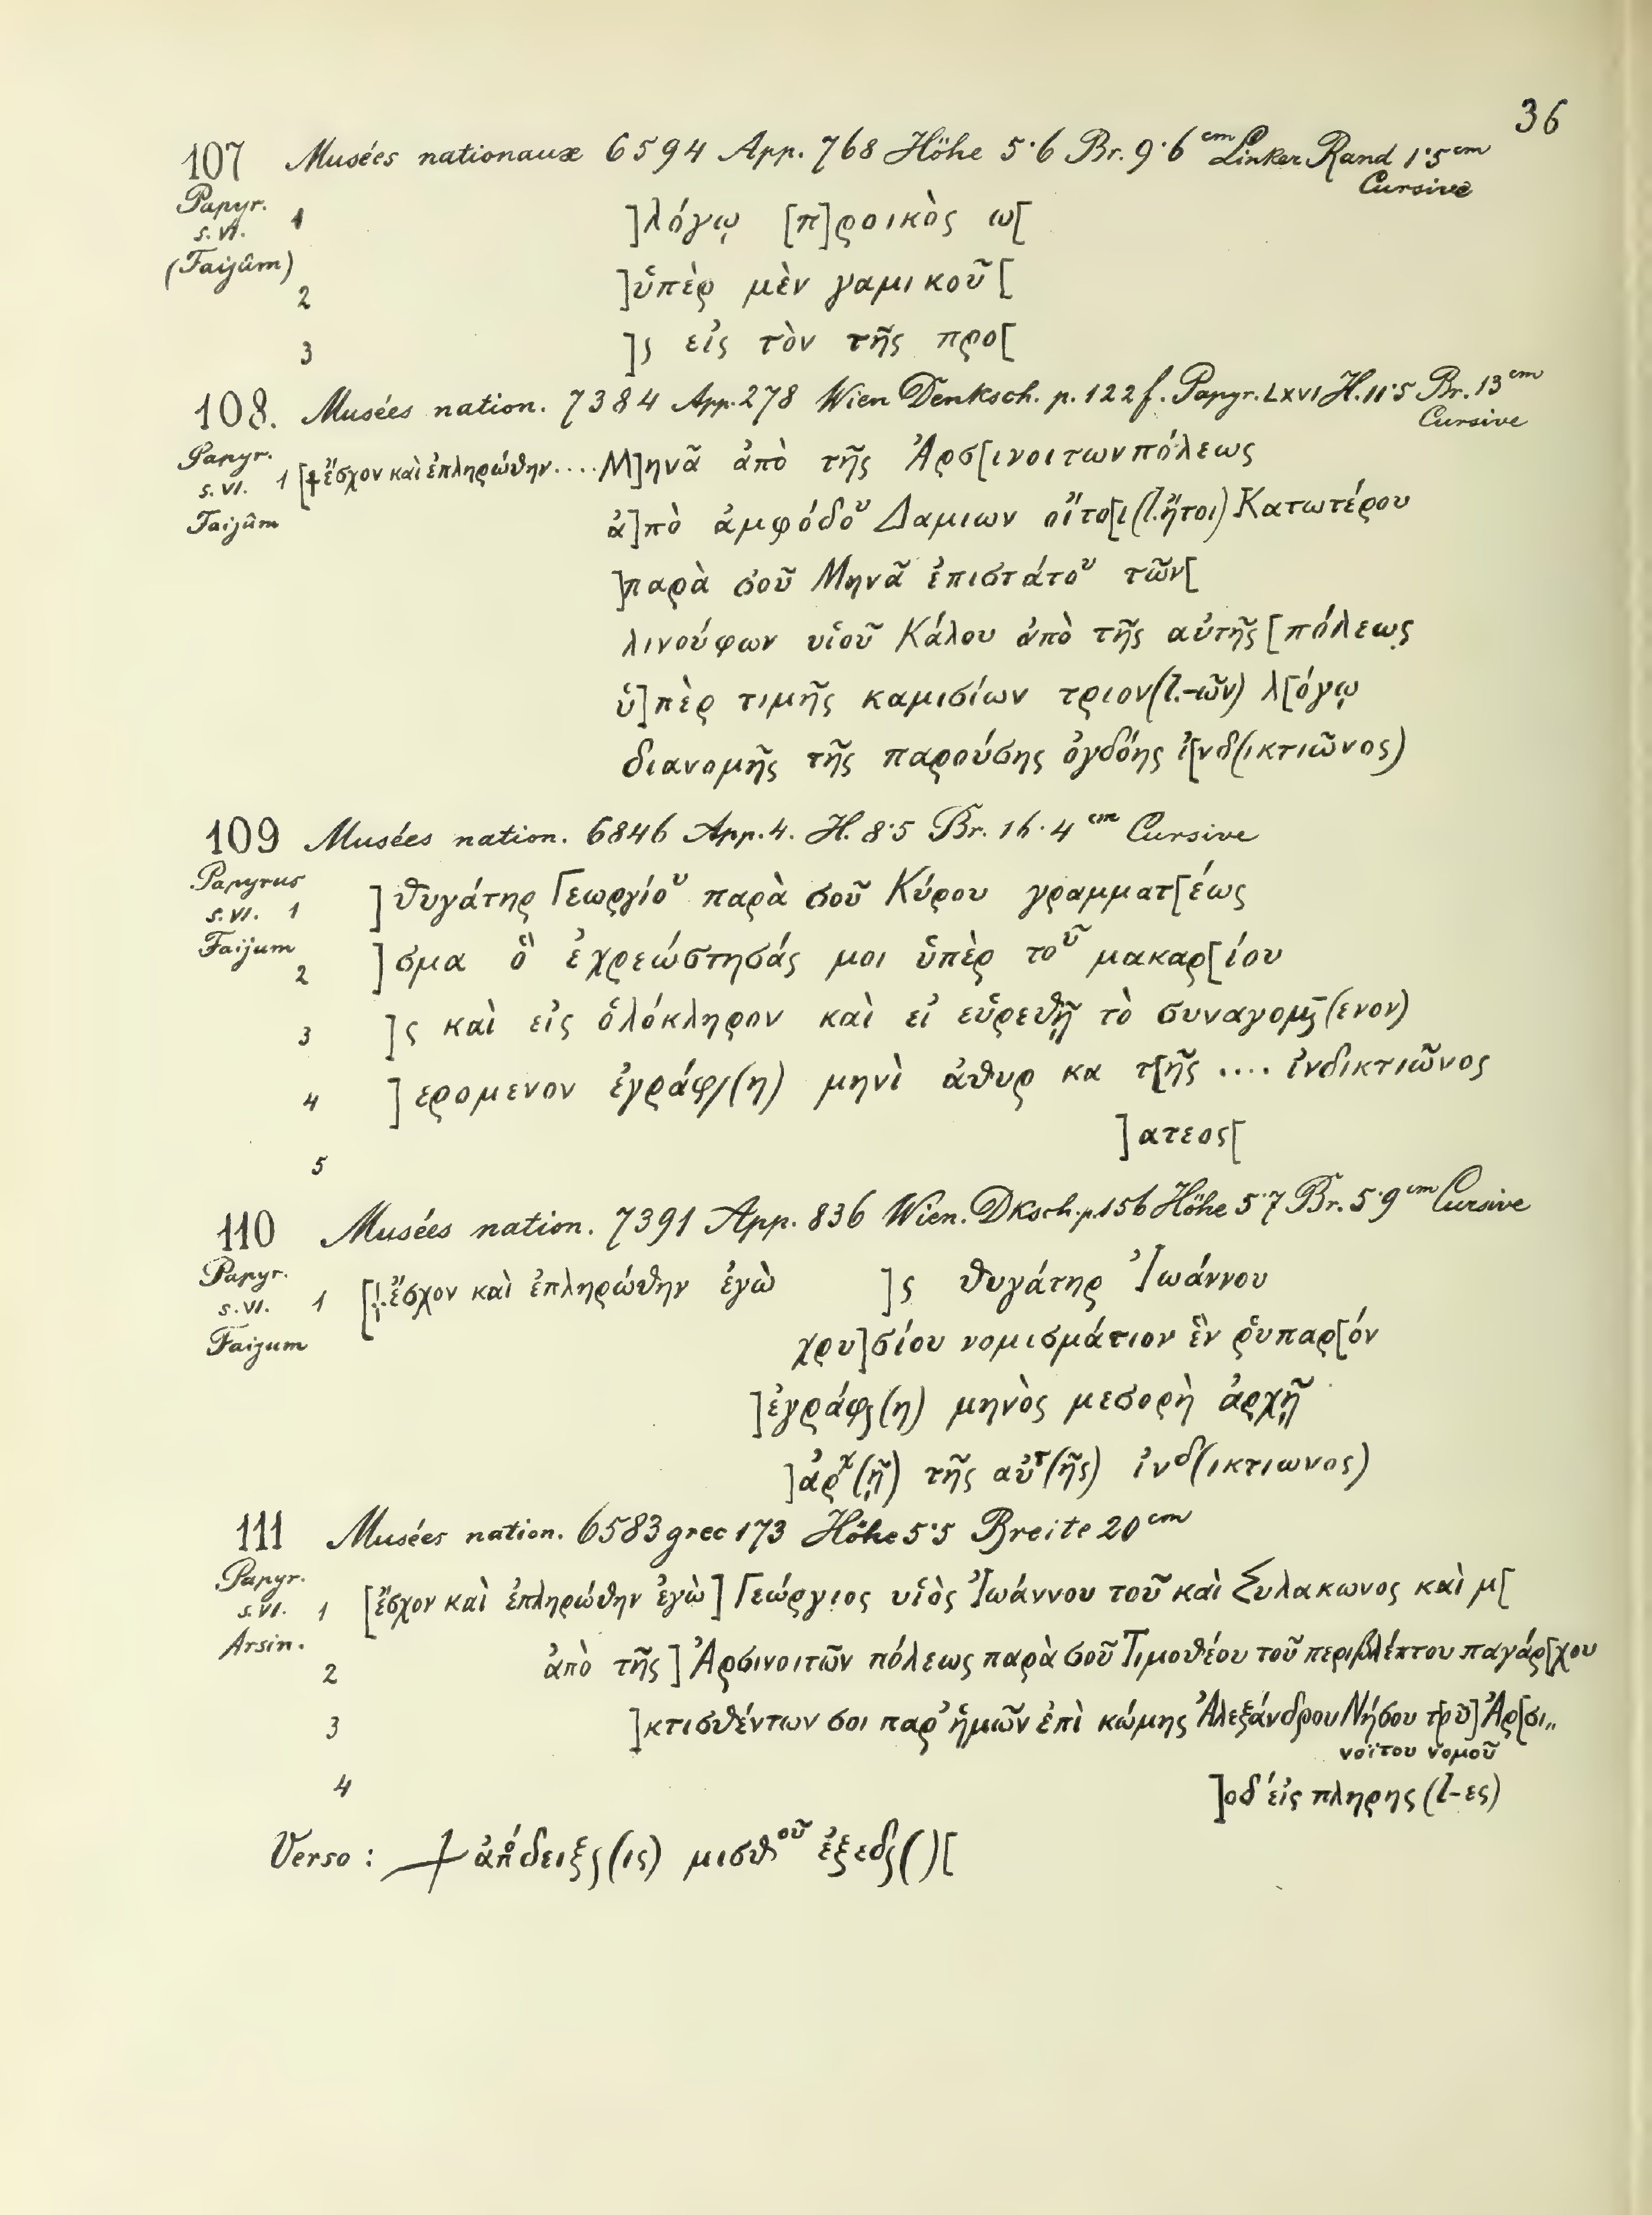 36
107 Musées nationaux 6594 App. 768 Höhe 5·6 Br. 9·6 cm Linker Rand 1·5 cm
Cursive
Papyr.
s. VI.
(Faijûm)
1 ]λόγῳ [π]ροικὸς ω[
2 ]ὑπὲρ μὲν γαμικοῦ[
3 ]ς εἰς τὸν τῆς προ[
108. Musées nation. 7384 App. 278 Wien Denksch. p. 122 f. Papyr. LXVI H. 11·5 Br. 13 cm
Cursive
Papyr.
s. VI.
Faijûm
1 [†ἔσχον καὶ ἐπληρώθην .... Μ]ηνᾶ ἀπὸ τῆς Ἀρσ[ινοιτων πόλεως
ἀ]πὸ ἀμφόδου Δαμιων οἴτο[ι (l. ἤτοι) Κατωτέρου
]παρὰ σοῦ Μηνᾶ ἐπιστάτου τῶν[
λινούφων υἱοῦ Κάλου ἀπὸ τῆς αὐτῆς [πόλεως
ὑ]πὲρ τιμῆς καμισίων τριον (l. -ιῶν) λ[όγῳ
διανομῆς τῆς παρούσης ὀγδόης ἰ[νδ(ικτιῶνος)
109 Musées nation. 6846 App. 4. H. 8·5 Br. 16·4 cm Cursive
Papyrus
s. VI.
Faijum
1 ]θυγάτηρ Γεωργίου παρὰ σοῦ Κύρου γραμματ[έως
2 ]σμα ὃ ἐχρεώστησάς μοι ὑπὲρ τοῦ μακαρ[ίου
3 ]ς καὶ εἰς ὁλόκληρον καὶ εἰ εὑρεθῇ τὸ συναγομ(ενον)
4 ]ερομενον ἐγράφ/(η) μηνὶ ἀθυρ κα τ[ῆς .... ἰνδικτιῶνος
5 ]ατεος[
110 Musées nation. 7391 App. 836 Wien. Dksch. p. 156 Höhe 5·7 Br. 5·9 cm Cursive
Papyr.
s. VI.
Faijum
1 [†ἔσχον καὶ ἐπληρώθην ἐγὼ ]ς θυγάτηρ Ἰωάννου
χρυ]σίου νομισμάτιον ἓν ῥυπαρ[όν
]ἐγράφς(η) μηνὸς μεσορὴ ἀρχῇ
]ἀρχ(ῇ) τῆς αὐτ(ῆς) ἰνδ(ικτιωνος)
111 Musées nation. 6583 grec 173 Höhe 5·5 Breite 20 cm
Papyr.
s. VI.
Arsin.
1 [ἔσχον καὶ ἐπληρώθην ἐγὼ] Γεώργιος υἱὸς Ἰωάννου τοῦ καὶ Ξυλακωνος καὶ μ[
2 ἀπὸ τῆς ] Ἀρσινοιτῶν πόλεως παρὰ σοῦ Τιμοθέου τοῦ περιβλέπτου παγάρ[χου
3 ]κτισθέντων σοι παρ᾽ ἡμῶν ἐπὶ κώμης Ἀλεξάνδρου Νήσου τ[οῦ] Ἀρ[σι„
νοϊτου νομοῦ
4 ]οδ᾽ εἰς πληρης (l -ες)
Verso : † ἀπόδειξς(ις) μισθοῦ ἐξεδς( )[